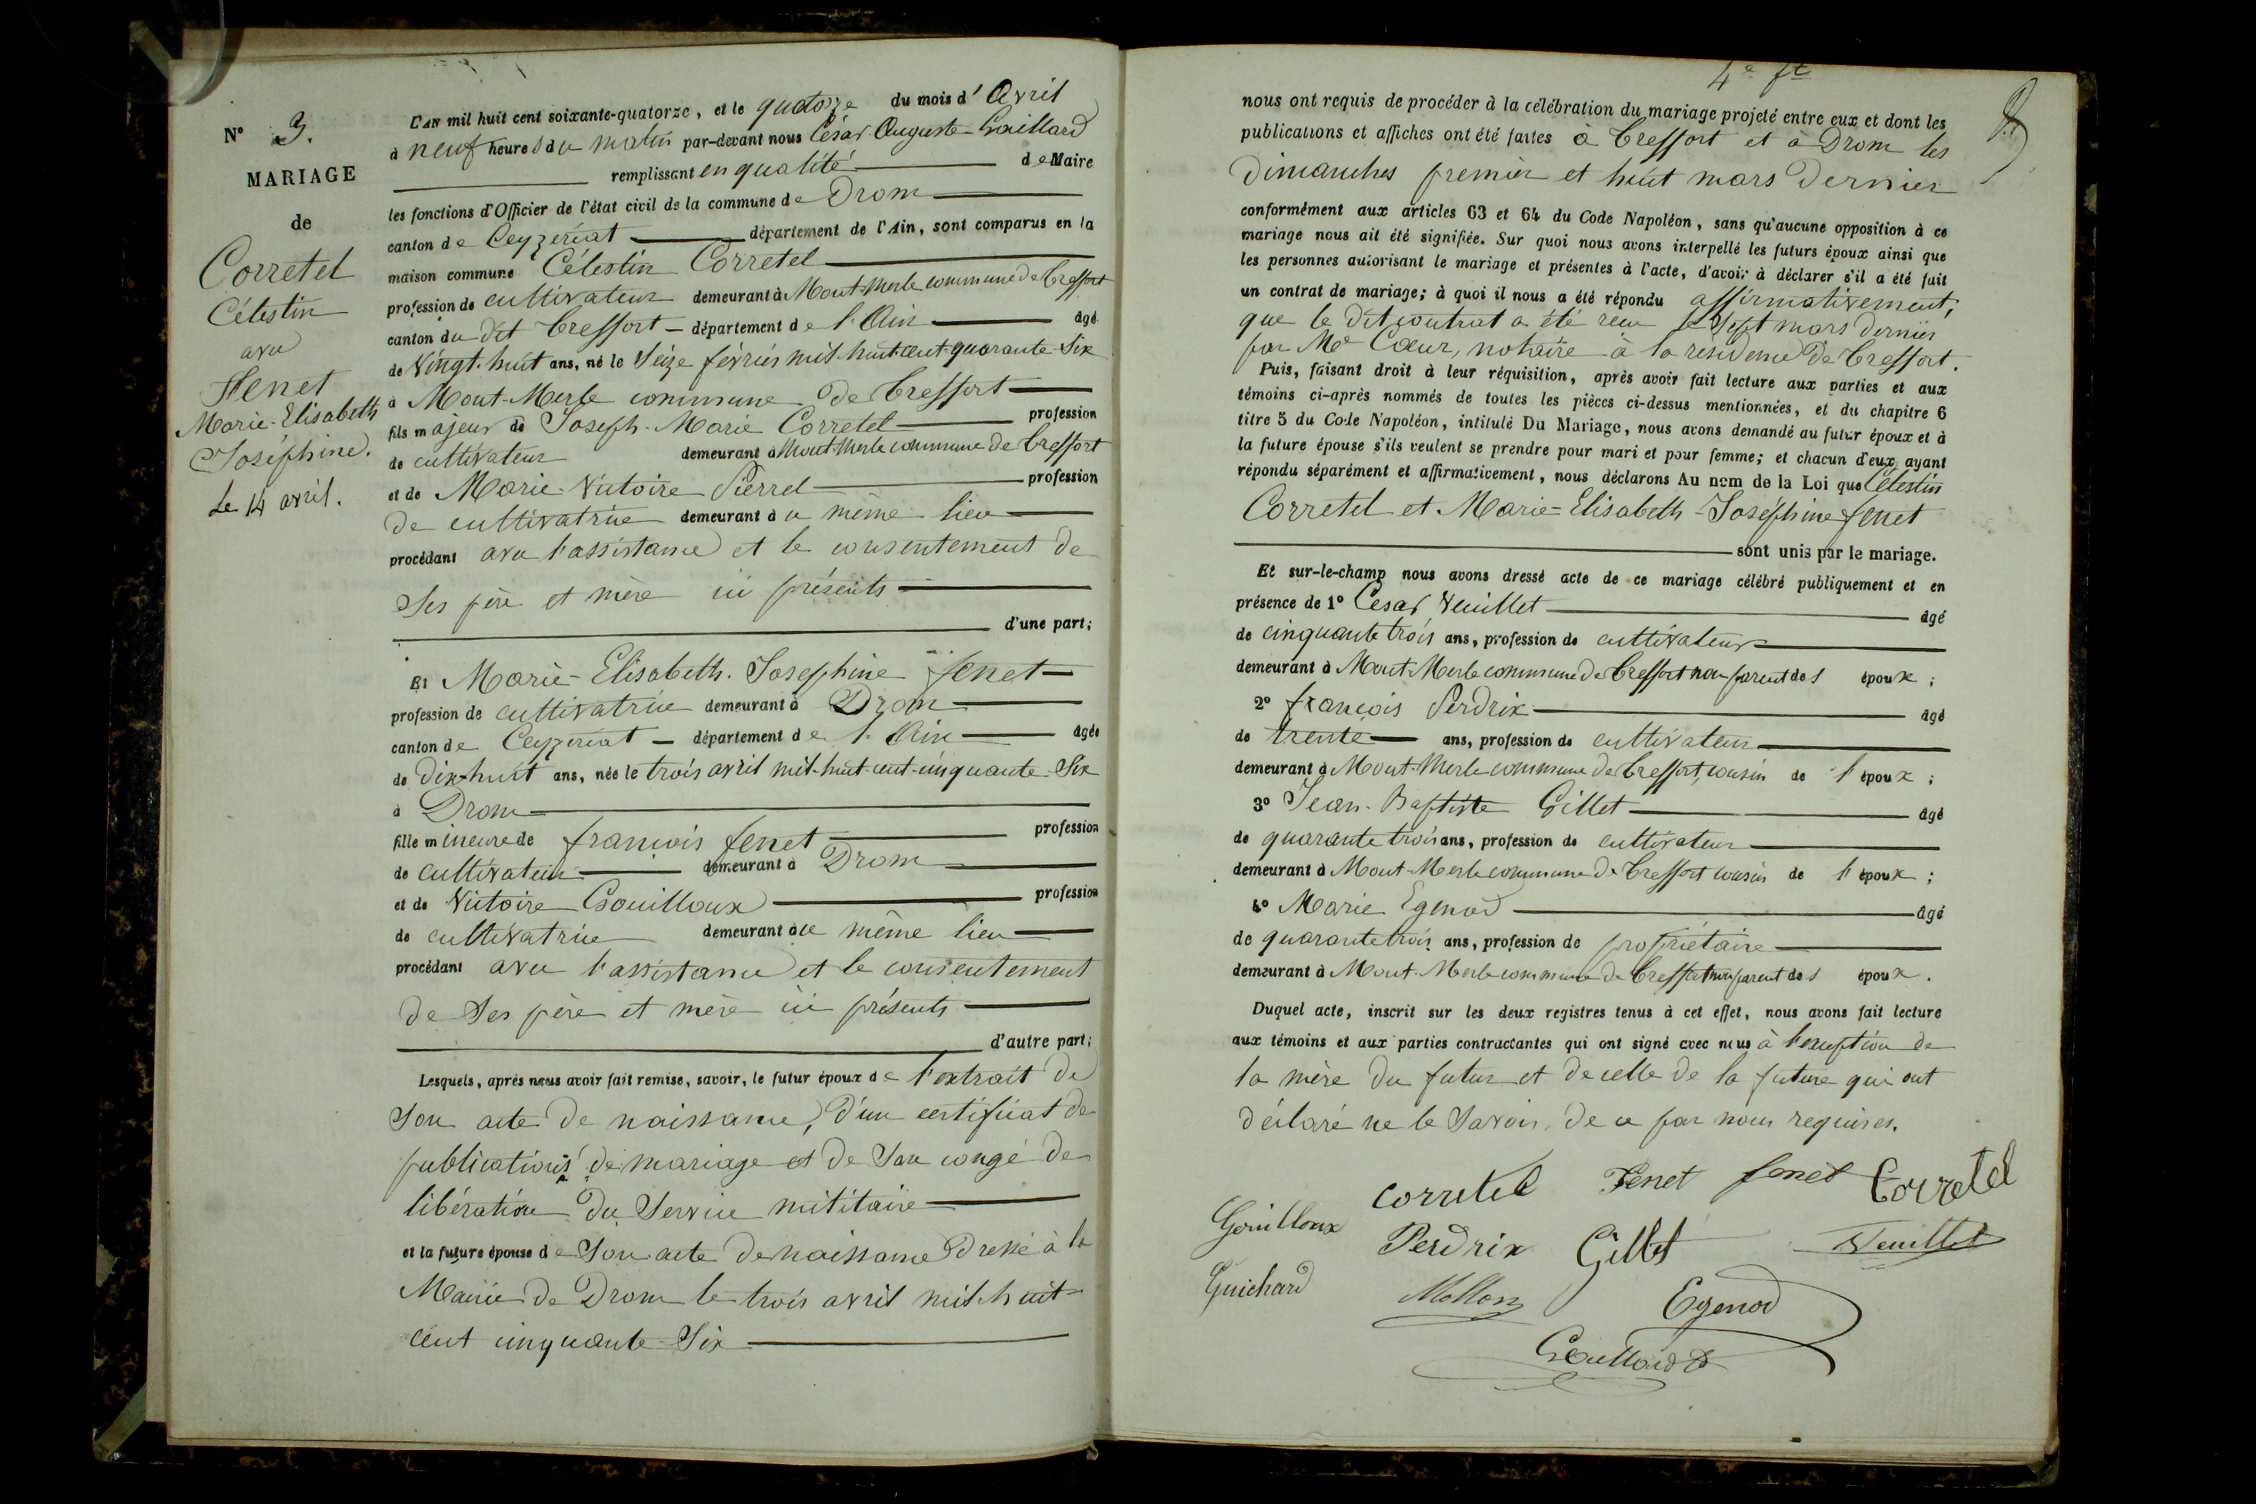 N° 3.
MARIAGE
de
Corretel
Célestin
avec
Fenet
Marie-Elisabeth
Joséphine.
Le 14 avril.
L'AN mil huit cent soixante-quatorze, et le quatorze du mois d'Avril
à neuf heures du matin par-devant nous César Auguste Goillard
remplissant en qualité de Maire
les fonctions d'Officier de l'état civil de la commune de Drom
canton de Ceyzeriat département de l'Ain, sont comparus en la
maison commune Célestin Corretel
profession de cultivateur demeurant à Mont-Merle commune de Treffort
canton du dit Treffort département de l'Ain âgé
de Vingt-huit ans, né le Seize février mil-huit-cent-quarante-Six
à Mont-Merle commune de Treffort
fils majeur de Joseph-Marie Corretel profession
de cultivateur demeurant à Mont-Merle commune de Treffort
et de Marie Victoire Pierrel profession
de cultivatrice demeurant au même lieu
procédant avec l'assistance et le consentement de
Ses père et mère ici présents
d'une part;
Et Marie-Elisabeth-Josephine fenet
profession de cultivatrice demeurant à Drom
canton de Ceyzeriat département de l'Ain âgée
de Dix-huit ans, née le trois avril mil-huit-cent-cinquante-Six
à Drom
fille mineure de francois fenet profession
de cultivateur demeurant à Drom
et de Victoire Gouilloux profession
de cultivatrice demeurant au même lieu
procédant avec l'assistance et le consentement
de Ses père et mère ici présents
d'autre part;
Lesquels, après nous avoir fait remise, savoir, le futur époux de l'extrait de
Son acte de naissance, d'un certificat de
publications de mariage et de Son congé de
libération du Service militaire
et la future épouse de Son acte de naissance dressé à la
Mairie de Drom le trois avril mil-huit-
cent cinquante-Six
4e ft
nous ont requis de procéder à la célébration du mariage projeté entre eux et dont les
publications et affiches ont été faites à Treffort et à Drom les
Dimanches premier et huit mars Dernier
conformément aux articles 63 et 64 du Code Napoléon, sans qu'aucune opposition à ce
mariage nous ait été signifiée. Sur quoi nous avons interpellé les futurs époux ainsi que
les personnes autorisant le mariage et présentes à l'acte, d'avoir à déclarer s'il a été fait
un contrat de mariage; à quoi il nous a été répondu affirmativement,
que le dit contrat a été reçu le Sept mars dernier
par Me Cœur, notaire à la résidence de Treffort.
Puis, faisant droit à leur réquisition, après avoir fait lecture aux parties et aux
témoins ci-après nommés de toutes les pièces ci-dessus mentionnées, et du chapitre 6
titre 5 du Code Napoléon, intitulé Du Mariage, nous avons demandé au futur époux et à
la future épouse s'ils veulent se prendre pour mari et pour femme; et chacun d'eux ayant
répondu séparément et affirmativement, nous déclarons Au nom de la Loi que Célestin
Corretel et Marie-Elisabeth-Joséphine fenet
sont unis par le mariage.
Et sur-le-champ nous avons dressé acte de ce mariage célébré publiquement et en
présence de 1° César Veuillet âgé
de cinquante trois ans, profession de cultivateur
demeurant à Mont-Merle commune de Treffort non parent des époux;
2° françois Perdrix âgé
de trente ans, profession de cultivateur
demeurant à Mont-Merle commune de Treffort, cousin de l'époux;
3° Jean-Baptiste Gillet âgé
de quarante trois ans, profession de cultivateur
demeurant à Mont-Merle commune de Treffort cousin de l'époux;
4° Marie Egenod âgé
de quarante trois ans, profession de propriétaire
demeurant à Mont-Merle commune de Treffort non parent des époux.
Duquel acte, inscrit sur les deux registres tenus à cet effet, nous avons fait lecture
aux témoins et aux parties contractantes qui ont signé avec nous à l'exception de
la mère du futur et de celle de la future qui ont
déclaré ne le Savoir, de ce par nous requises.
Corretel Fenet fenet Corretel
Gouilloux Perdrix Gillet Veuillet
Guichard Mollon Egenod
Goillard